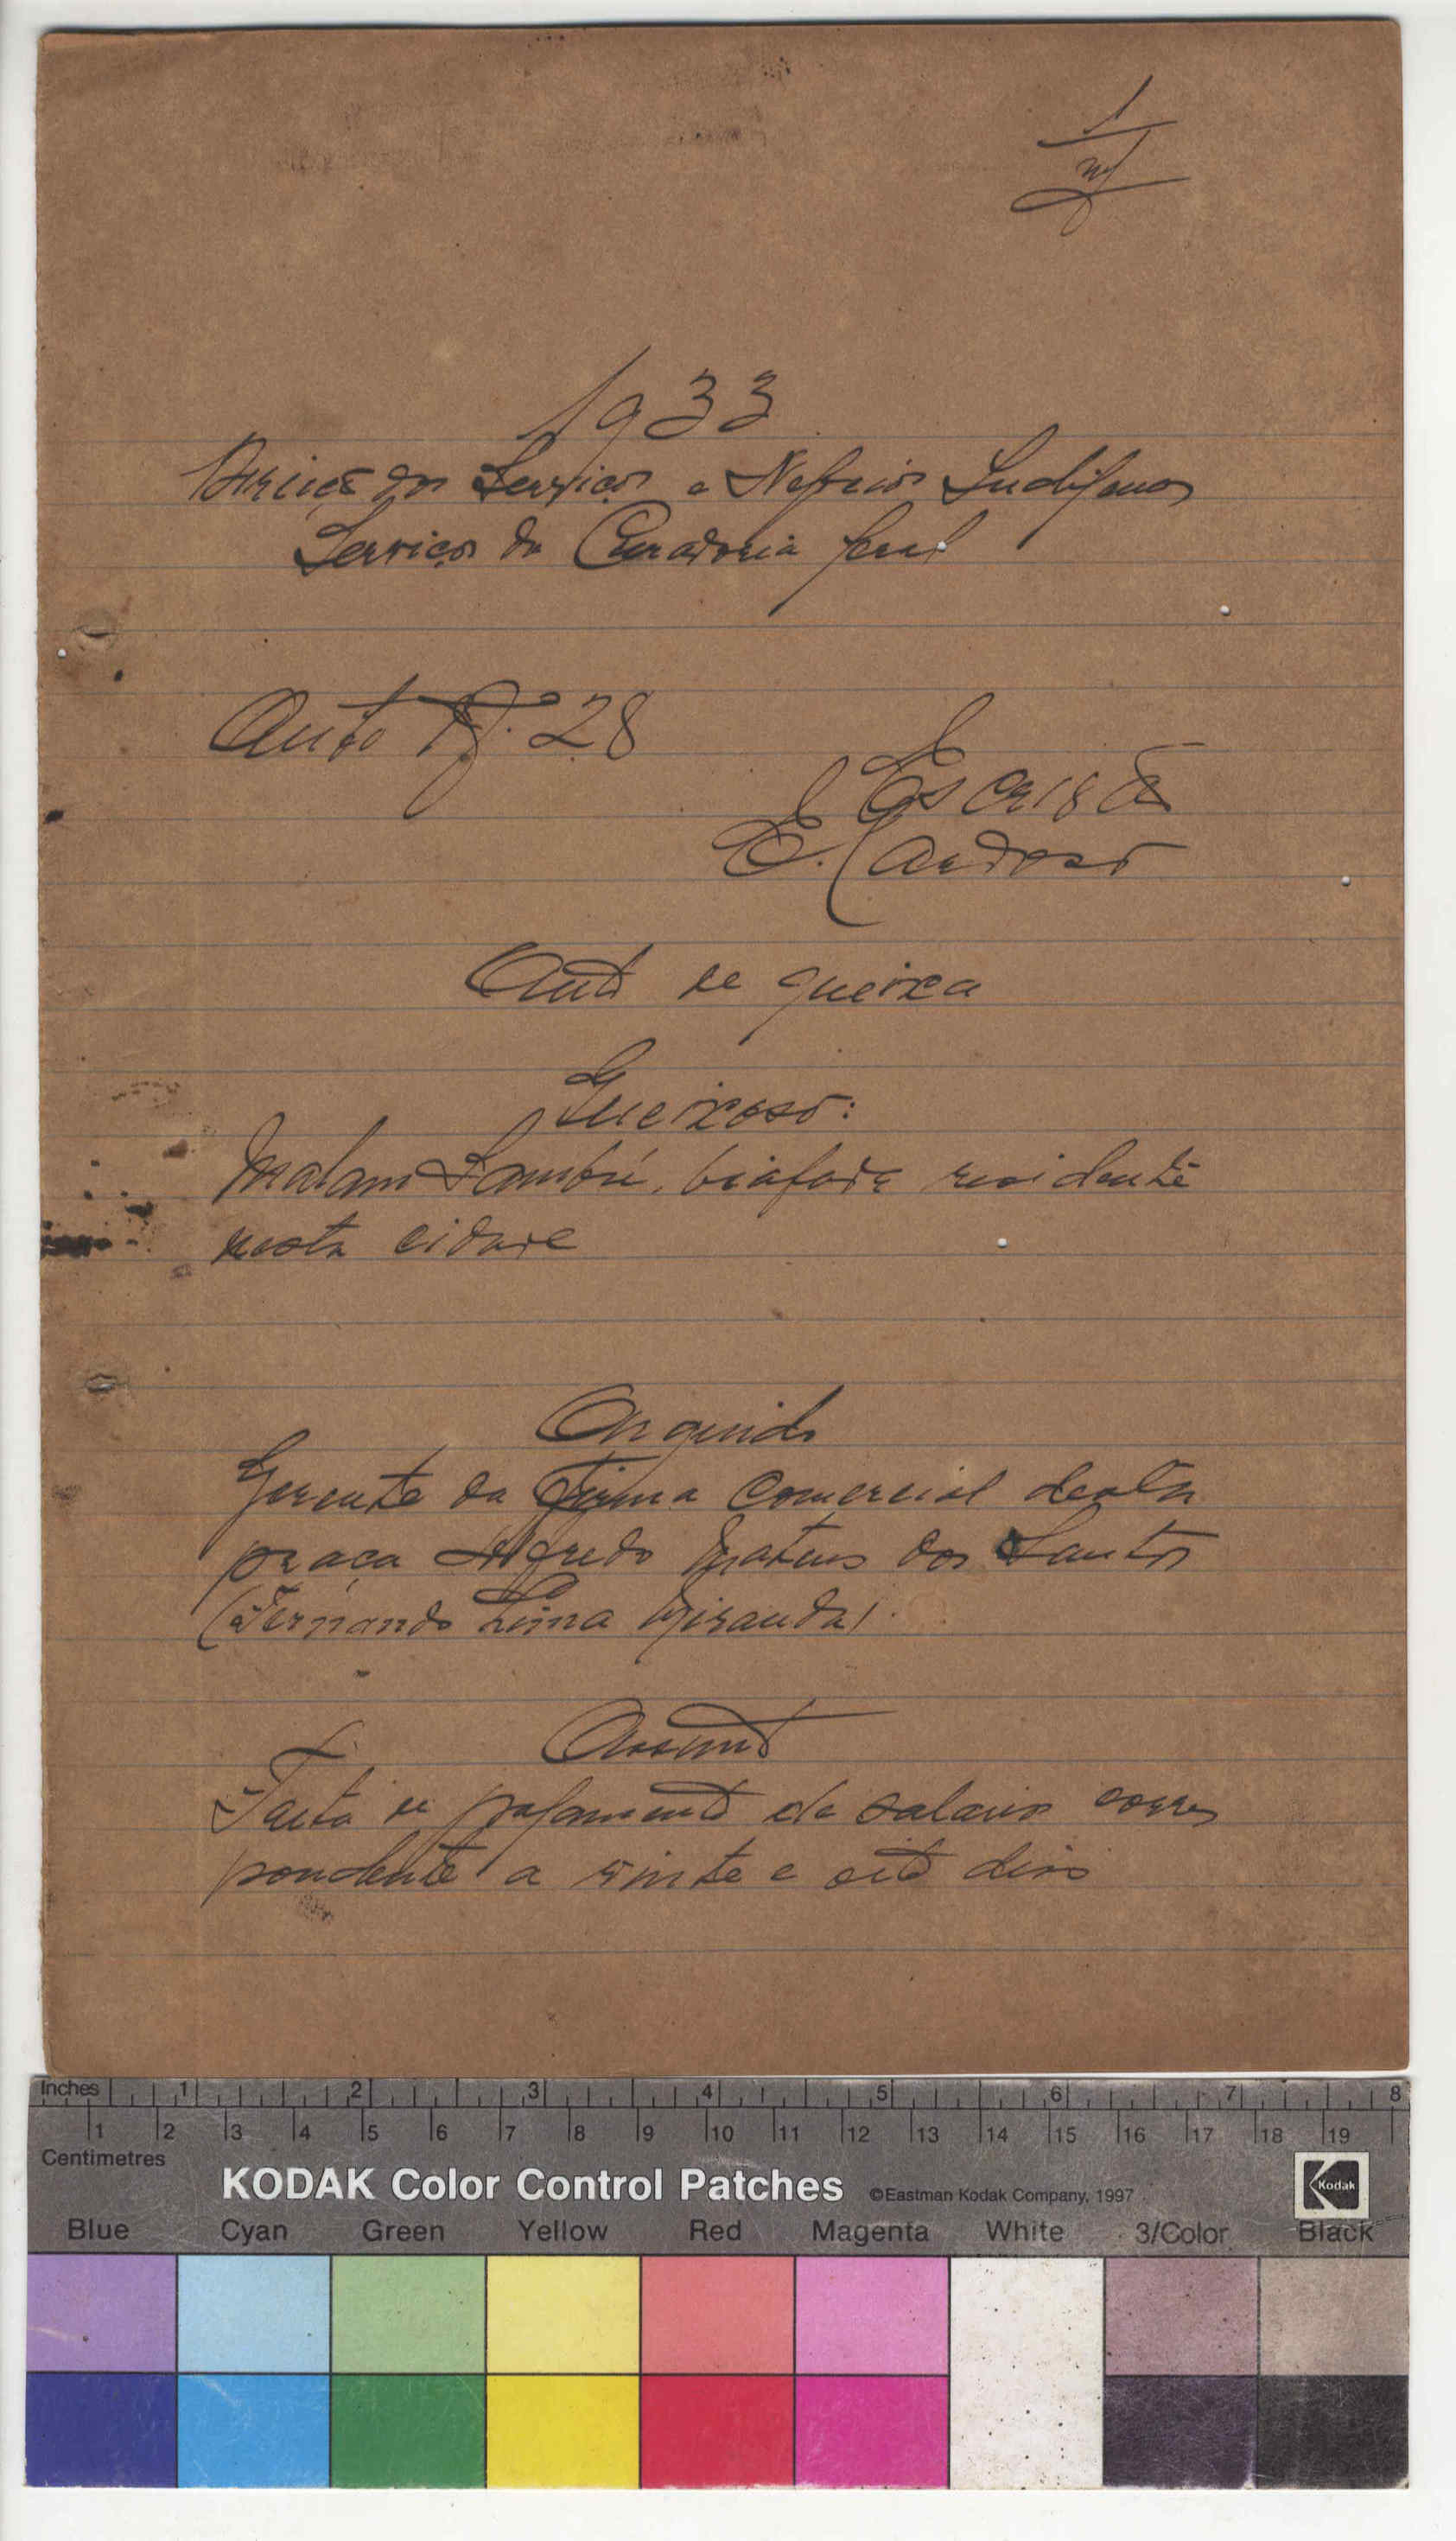 1
1933
Direcção dos Serviços e Negocios Indigenas
Serviços da Curadoria Geral
Auto Nº 28
O Escrivão
E. Cardoso
Auto de queixa
Queixoso:
Malam Sambú, biafada residente
nesta cidade
Arguido
Gerente da Firma Comercial desta
praça Alfredo Mateus dos Santos
(Fernando Lima Miranda).
Assunto
Falta de pagamento de salarios corres
pondente a vinte e oito dias
Inches 1 2 3 4 5 6 7 8
1 2 3 4 5 6 7 8 9 10 11 12 13 14 15 16 17 18 19
Centimetres
KODAK Color Control Patches ©Eastman Kodak Company, 1997 Kodak
Blue Cyan Green Yellow Red Magenta White 3/Color Black